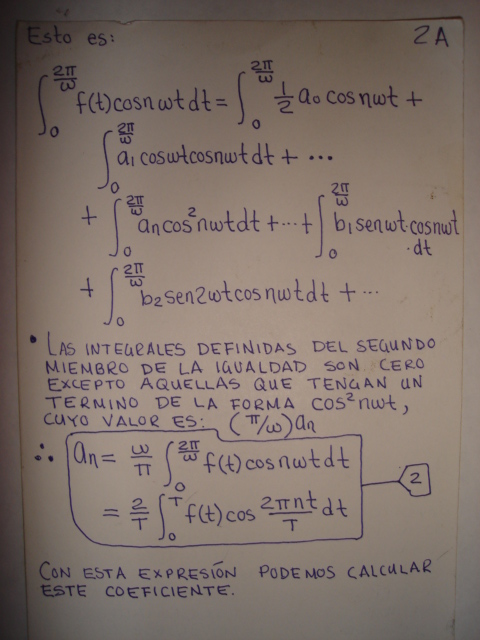 Esto es: 2A
∫₀^(2π/ω) f(t)cosnωtdt = ∫₀^(2π/ω) ½a₀cosnωt +
∫₀^(2π/ω) a₁cosωtcosnωtdt + ...
+ ∫₀^(2π/ω) aₙcos²nωtdt + ... + ∫₀^(2π/ω) b₁senωt·cosnωt
·dt
+ ∫₀^(2π/ω) b₂sen2ωtcosnωtdt + ...
• LAS INTEGRALES DEFINIDAS DEL SEGUNDO
MIEMBRO DE LA IGUALDAD SON CERO
EXCEPTO AQUELLAS QUE TENGAN UN
TERMINO DE LA FORMA cos²nωt,
CUYO VALOR ES: (π/ω)aₙ
∴ aₙ = ω/π ∫₀^(2π/ω) f(t)cosnωtdt
= 2/T ∫₀^T f(t)cos 2πnt/T dt
2
CON ESTA EXPRESIÓN PODEMOS CALCULAR
ESTE COEFICIENTE.